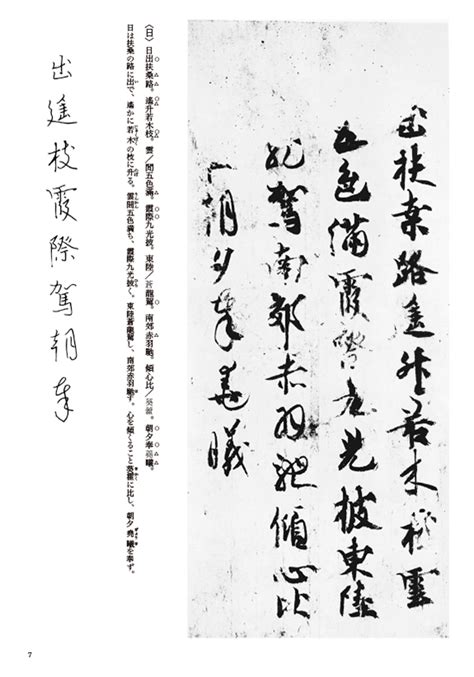 出扶桒路遥升若木枝雲
五色満霞際九光披東陸
龍駕南郊赤羽馳傾心比
朝夕奉堯曦
〈日〉日出扶桑路。遙升若木枝。雲/間五色滿。霞際九光披。東陸/蒼龍駕。南郊赤羽馳。傾心比/葵藿。朝夕奉堯曦。
日は扶桑の路に出で、遙かに若木の枝に升る。雲間五色満ち、霞際九光披く。東陸蒼龍駕し、南郊赤羽馳す。心を傾くること葵藿に比し、朝夕堯曦を奉ず。
出遥枝霞際駕朝奉
7